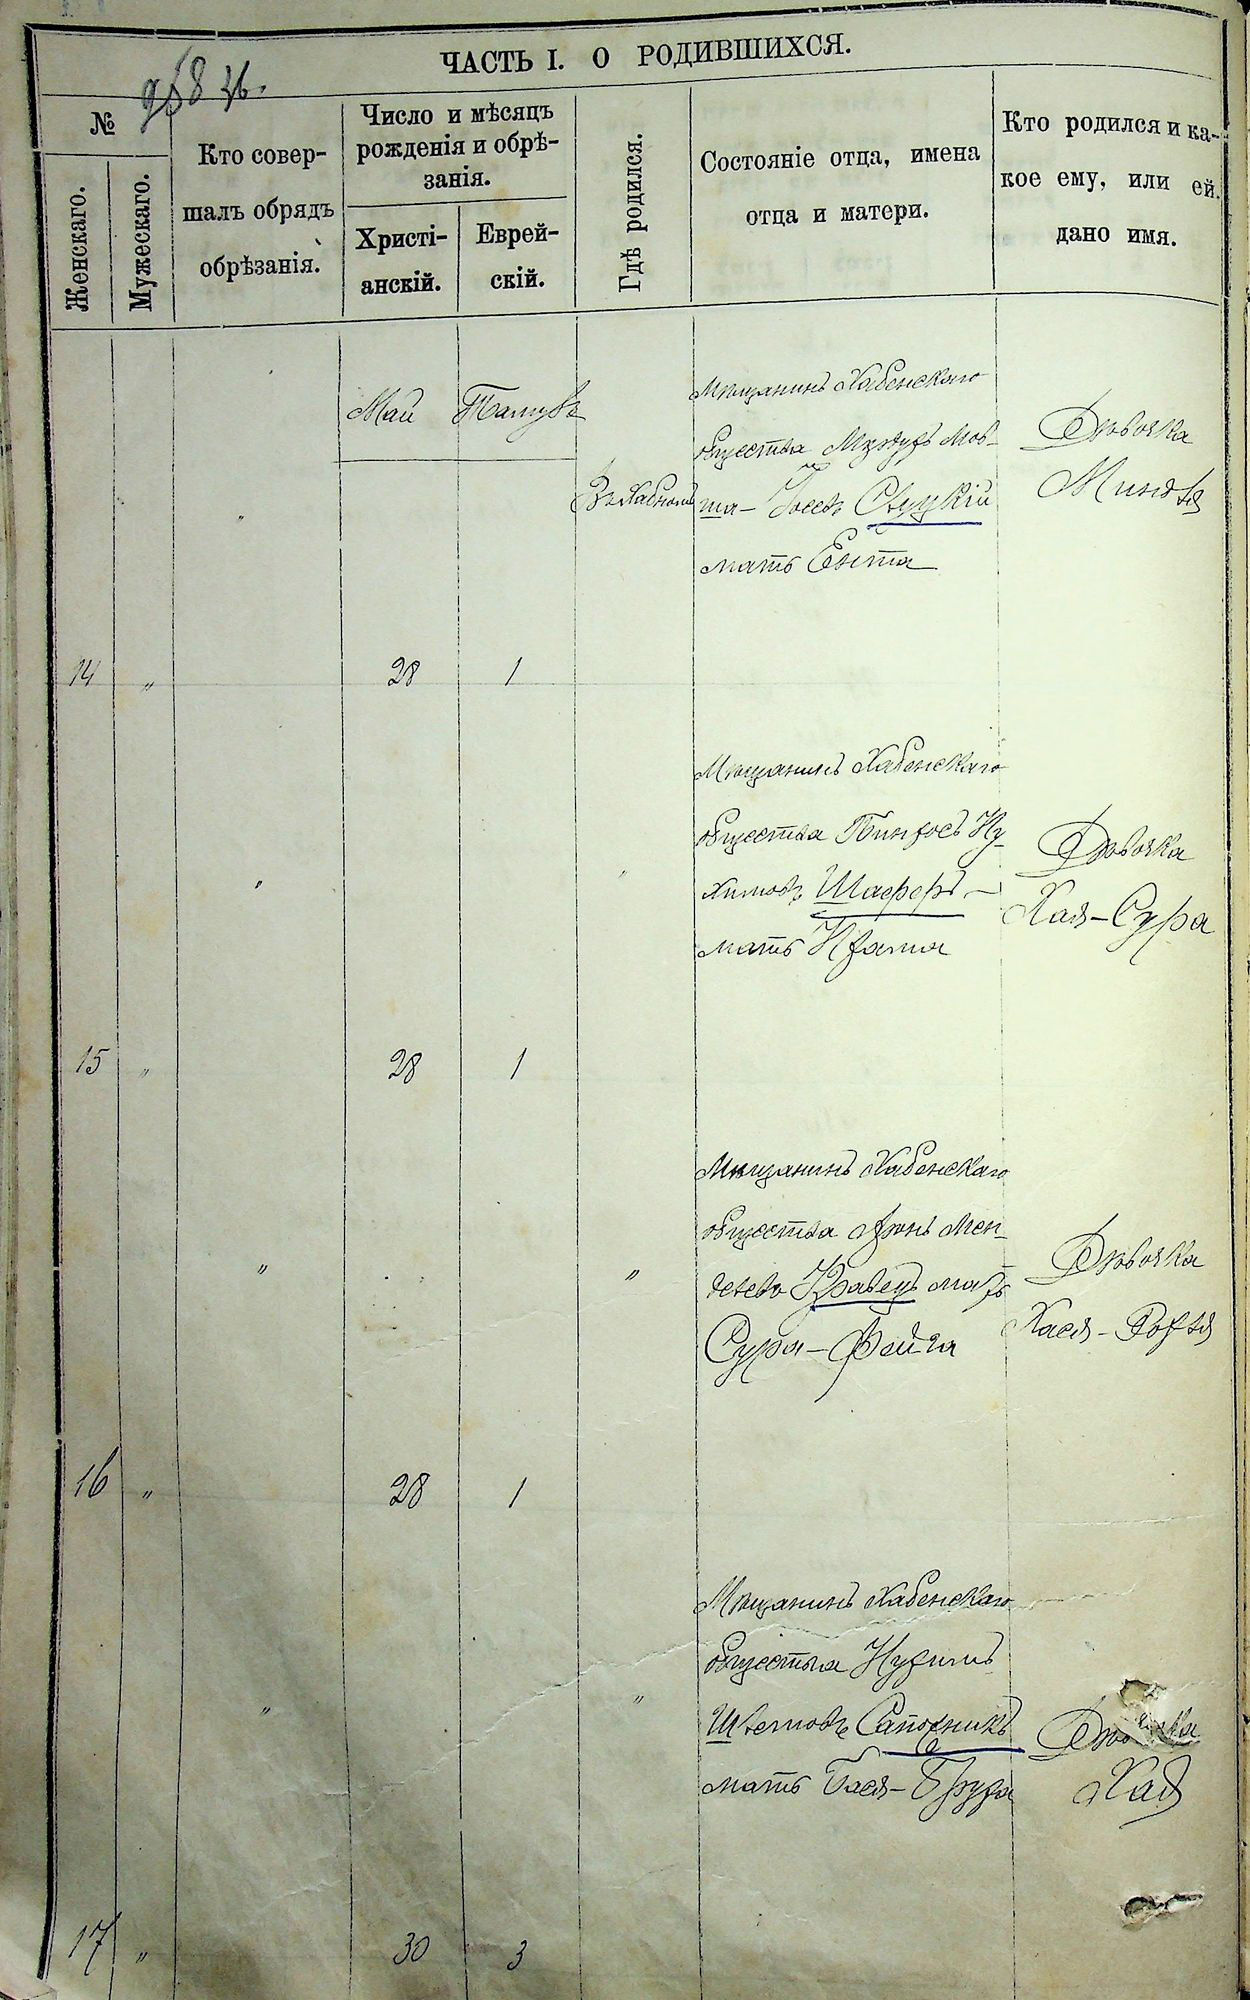 ЧАСТЬ I. О РОДИВШИХСЯ.
№
Женскаго.
Мужескаго.
Кто совер-
шалъ обрядъ
обрѣзанія.
Число и мѣсяцъ
рожденія и обрѣ-
занія.
Христі-
анскій.
Еврей-
скій.
Гдѣ родился.
Состояніе отца, имена
отца и матери.
Кто родился и ка-
кое ему, или ей
дано имя.
Май
14 „ „ 28 1
Мѣщанинъ Хабенскаго
общества Мов-
ша- Іосевъ Слуцкій
мать Ента
Дѣвочка
Миндля
15 „ „ 28 1 „
Мѣщанинъ Хабенскаго
общества Пинхосъ Ну-
химовъ Шаферъ -
мать
Дѣвочка
Хая-Сура
16 „ „ 28 1 „
Мѣщанинъ Хабенскаго
общества Аронъ Мен-
делевъ Кравецъ мать
Сура-Фейга
Дѣвочка
Хася-
17 „ „ 30 3 „
Мѣщанинъ Хабенскаго
общества Нухимъ
Шлемовъ Сапожникъ
мать Бася-Бруха
Дѣвочка
Хая